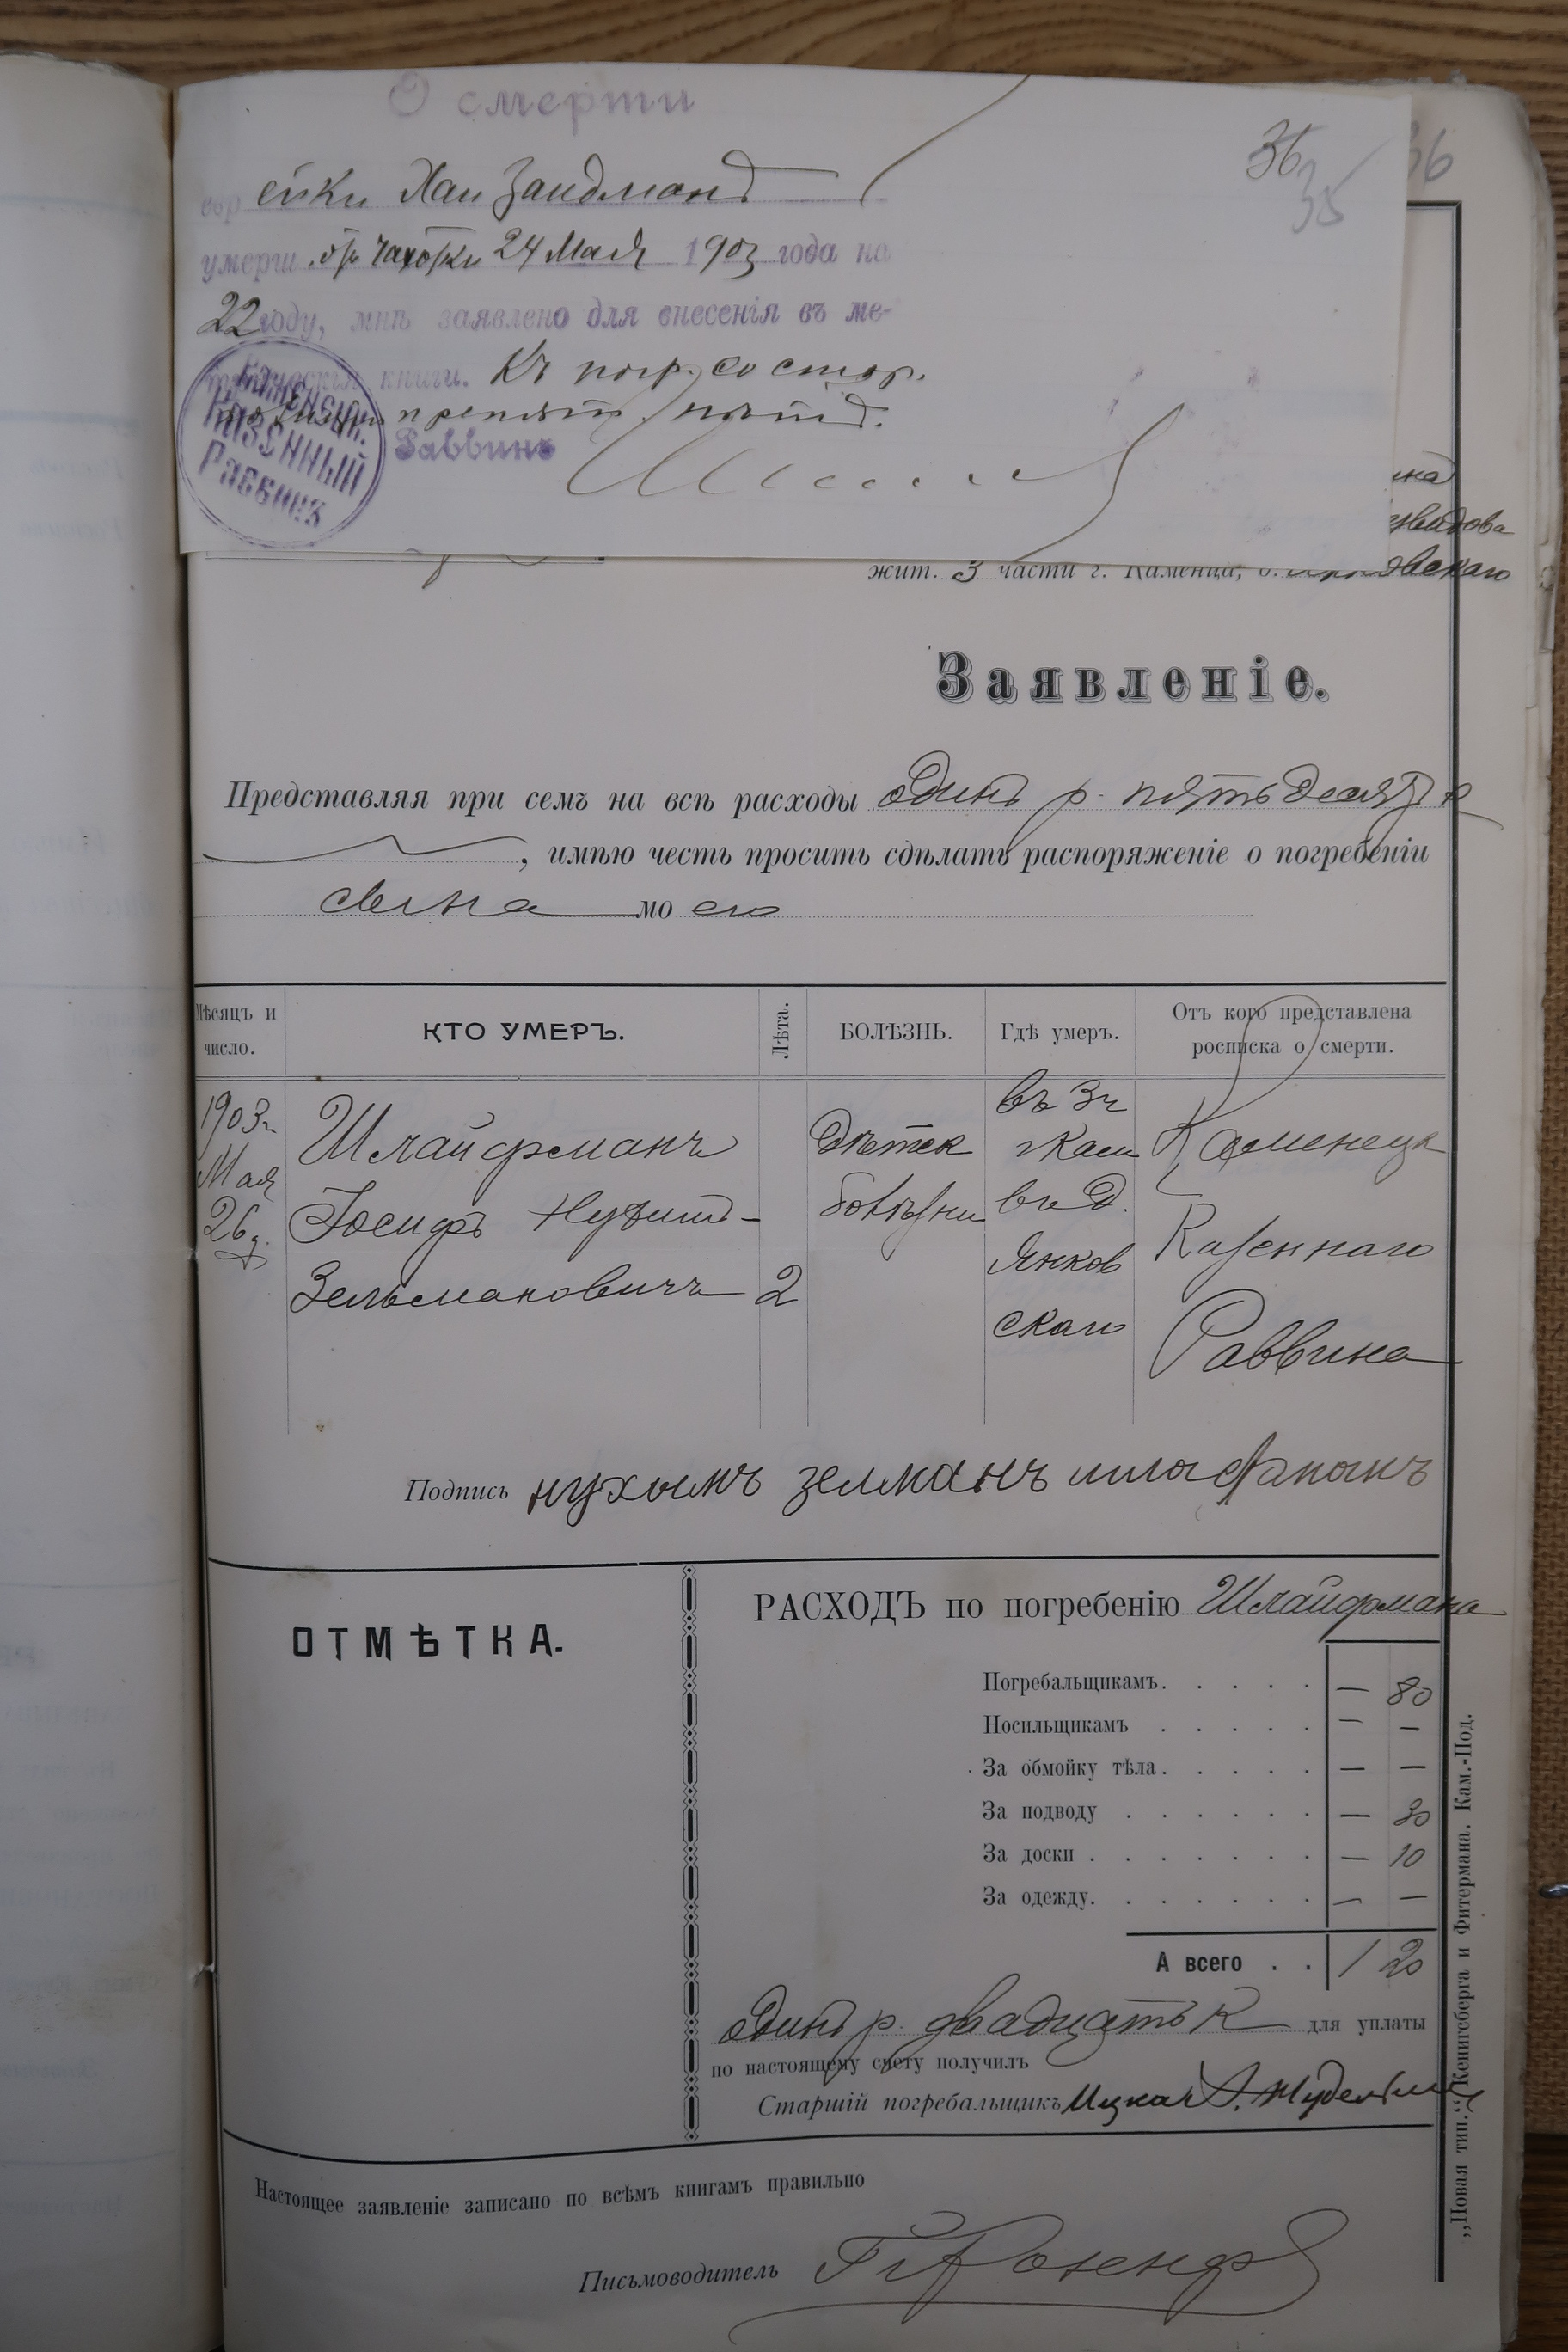 О смерти
36
35
36
евр ейки Хаи Зандманъ
умерш. отъ чахотки 24 Мая 1903 года на
22 году, мнѣ заявлено для внесенія въ ме-
книги. Къ погр. со стор.
препятст.
Раввинъ
КАЗЕННЫЙ
Раввинъ
жит. 3 части г. Каменца,
Заявленіе.
Представляя при семъ на всѣ расходы одинъ р. пятьдесят к
, имѣю честь просить сдѣлать распоряженіе о погребеніи
сына моего
Мѣсяцъ и число. КТО УМЕРЪ. Лѣта. БОЛѢЗНЬ. Гдѣ умеръ. Отъ кого представлена росписка о смерти.
1903г Мая 26д.
Шлайфманъ
Іосифъ
Зельмановичъ 2
Дѣтск
болѣзни
въ 3ч
гКам
въ д.
Янков
скаго
Каменецк
Казеннаго
Раввина
Подпись нухымъ зелманъ
ОТМѢТКА.
РАСХОДЪ по погребенію Шлайфмана
Погребальщикамъ. . . . . — 80
Носильщикамъ . . . . . — —
За обмойку тѣла. . . . . — —
За подводу . . . . . . — 30
За доски . . . . . . . — 10
За одежду. . . . . . . — —
А всего . . 1 20
одинъ р. двадцать к для уплаты
по настоящему счету получилъ
Старшій погребальщикъ Ицка
Настоящее заявленіе записано по всѣмъ книгамъ правильно
Письмоводитель
„Новая тип.“ Кенигсберга и Фитермана. Кам.-Под.